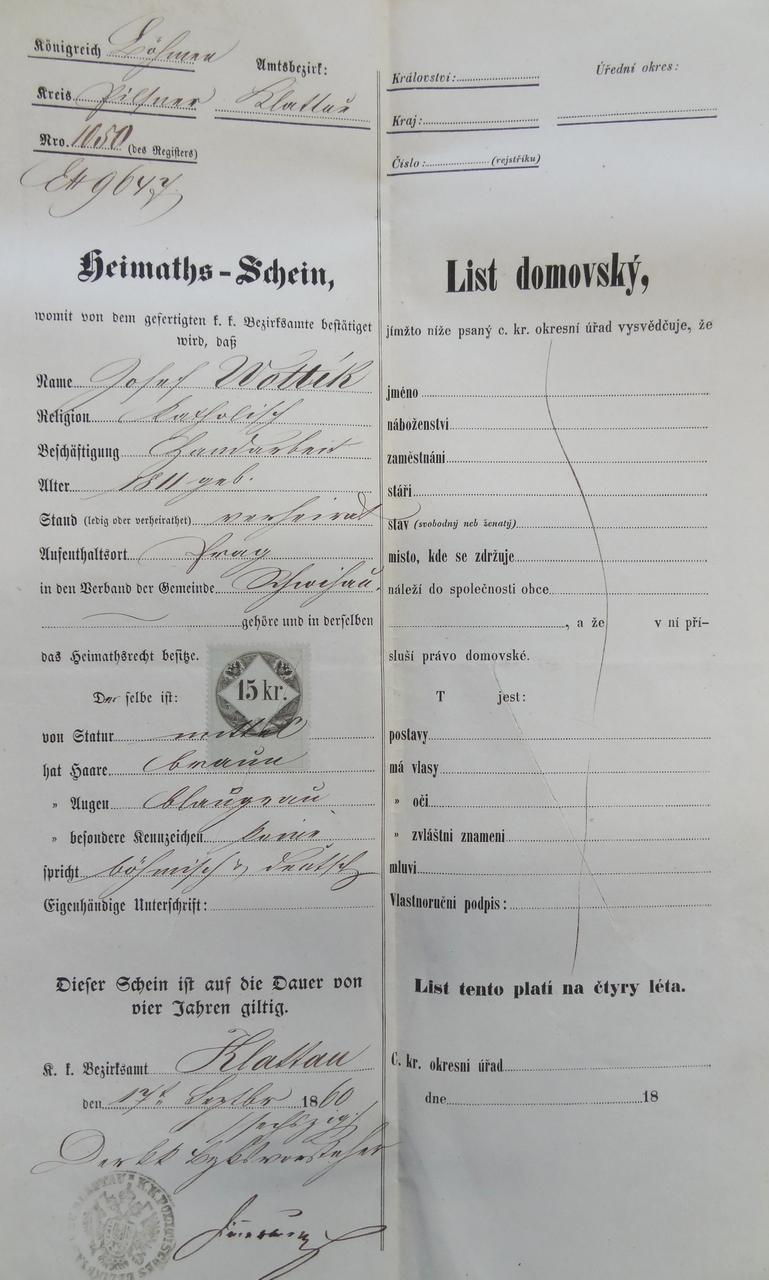 Königreich Böhmen
Amtsbezirk:
Kreis Pilsner Klattau
Nro. 1050 (des Registers)
9647
Heimaths-Schein,
womit von dem gefertigten k. k. Bezirksamte bestätiget
wird, daß
Name Josef Wottik
Religion katholisch
Beschäftigung Handarbeit
Alter 1811 geb.
Stand (ledig oder verheirathet) verheirat
Aufenthaltsort Prag
in den Verband der Gemeinde Schwihau
gehöre und in derselben
das Heimathsrecht besitze.
15 kr.
Derselbe ist:
von Statur mittel
hat Haare braun
" Augen blaugrau
" besondere Kennzeichen keine
spricht böhmisch & deutsch
Eigenhändige Unterschrift:
Dieser Schein ist auf die Dauer von
vier Jahren giltig.
K. k. Bezirksamt Klattau
den 17t Septbr 1860
sechszig
Der kk Bzksvorsteher
Království:
Úřední okres:
Kraj:
Číslo: (rejstříku)
List domovský,
jímžto níže psaný c. kr. okresní úřad vysvědčuje, že
jméno
náboženství
zaměstnání
stáří
stav (svobodný neb ženatý)
místo, kde se zdržuje
náleží do společnosti obce
, a že v ní pří-
sluší právo domovské.
T jest:
postavy
má vlasy
" oči
" zvláštní znamení
mluví
Vlastnoruční podpis:
List tento platí na čtyry léta.
C. kr. okresní úřad
dne 18